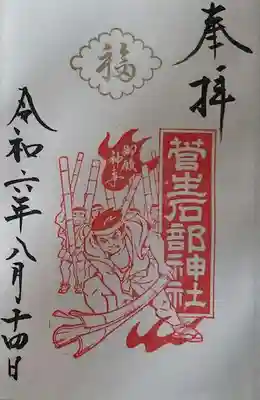 奉拝
福
菅生石部神社
御願
神事
令和六年八月十四日